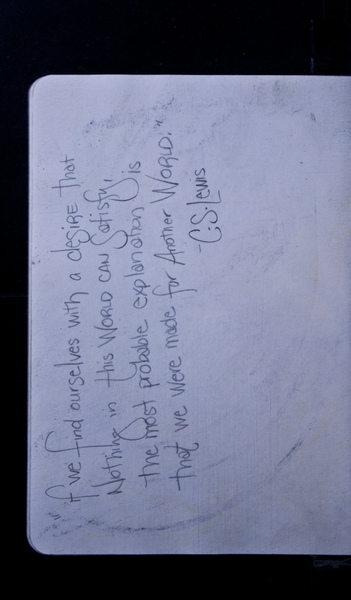 "if we find ourselves with a desire that
Nothing in this World can satisfy,
the most probable explanation is
that we were made for Another World."
-C.S. Lewis